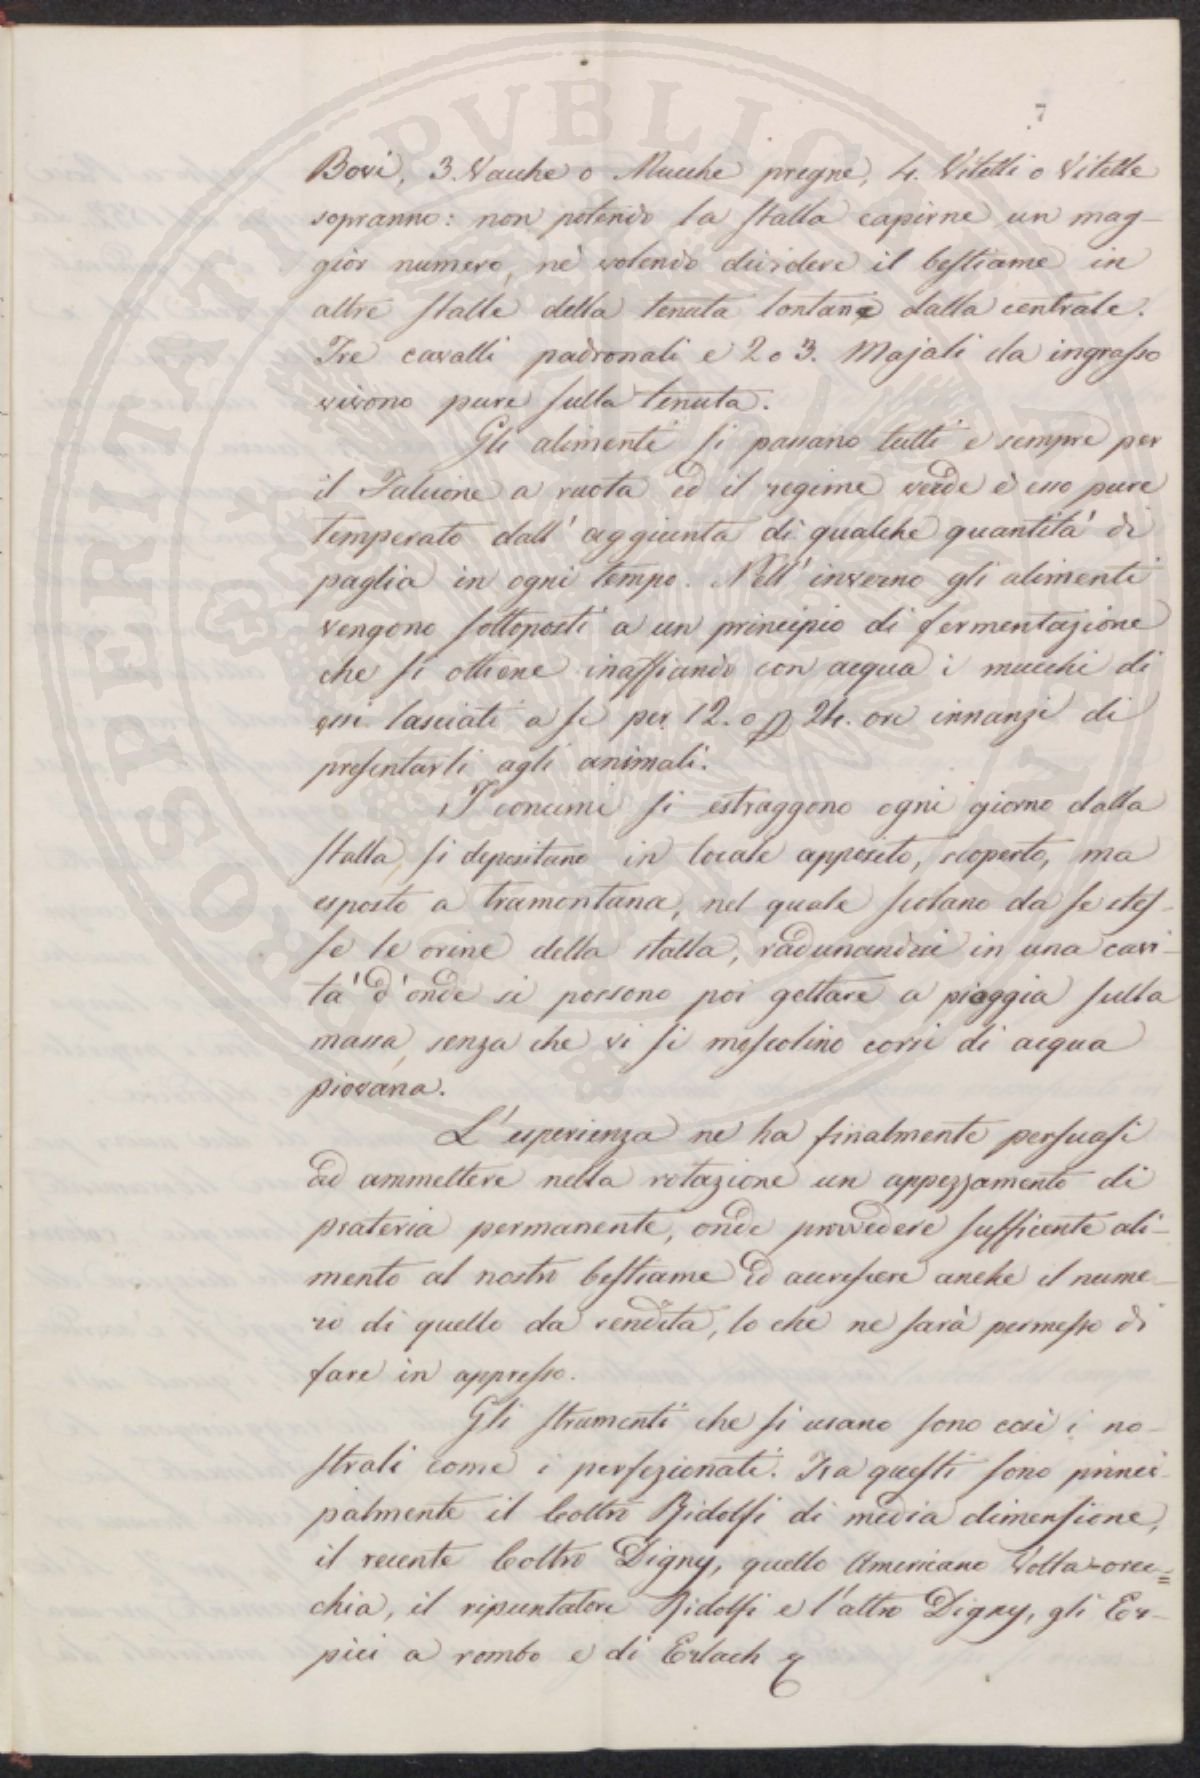 7
Bovi, 3. Vacche o Mucche pregne, 4. Vitelli o Vitelle
sopranno: non potendo la stalla capirne un mag-
gior numero, nè volendo dividere il bestiame in
altre stalle della tenuta lontane dalla centrale.
Tre cavalli padronali e 2 o 3. Majali da ingrasso
vivono pure sulla tenuta.
Gli alimenti si passano tutti e sempre per
il Falcione a ruota ed il regime verde è esso pure
temperato dall' aggiunta di qualche quantità di
paglia in ogni tempo. Nell' inverno gli alimenti
vengono sottoposti a un principio di fermentazione
che si ottiene inaffiando con acqua i mucchi di
essi lasciati a se per 12. o 24. ore innanzi di
presentarli agli animali.
I concimi si estraggono ogni giorno dalla
stalla, si depositano in locale apposito, scoperto, ma
esposto a tramontana, nel quale scolano da se stes-
se le orine della stalla, radunandosi in una cavi-
tà d' onde si possono poi gettare a pioggia sulla
massa, senza che vi si mescolino corsi di acqua
piovana.
L' esperienza ne ha finalmente persuasi
ad ammettere nella rotazione un appezzamento di
prateria permanente, onde provvedere sufficente ali-
mento al nostro bestiame ed accrescere anche il nume-
ro di quello da rendita, lo che ne sarà permesso di
fare in appresso.
Gli strumenti che si usano sono così i no-
strali come i perfezionati. Fra questi sono princi-
palmente il Coltro Ridolfi di media dimensione,
il recente Coltro Digny, quello Americano Volta-orec=
chia, il ripuntatore Ridolfi e l' altro Digny, gli Er-
pici a rombo e di Erlach
PROSPERITATI PUBLICAE